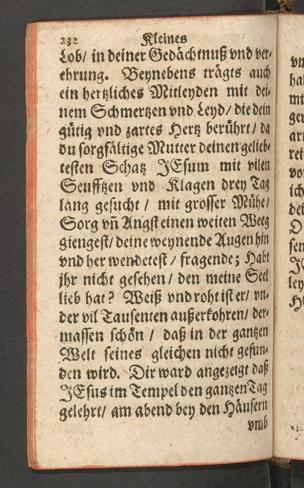 232 Kleines
Lob/ in deiner Gedächtnuß vnd ver-
ehrung. Beynebens trägts auch
ein hertzliches Mitleyden mit dei-
nem Schmertzen vnd Leyd/ die dein
gütig vnd zartes Hertz berührt/ da
du sorgfältige Mutter deinen gelieb-
testen Schatz JEsum mit vilen
Seufftzen vnd Klagen drey Tag
lang gesucht/ mit grosser Mühe/
Sorg vñ Angst einen weiten Weeg
giengest/ deine weynende Augen hin
vnd her wendetest/ fragende; Habt
jhr nicht gesehen/ den meine Seel
lieb hat? Weiß vnd roht ist er/ vn-
der vil Tausenten außerkohren/ der-
massen schön/ daß in der gantzen
Welt seines gleichen nicht gefun-
den wird. Dir ward angezeigt daß
JEsus im Tempel den gantzen Tag
gelehrt/ am abend bey den Häusern
vmb